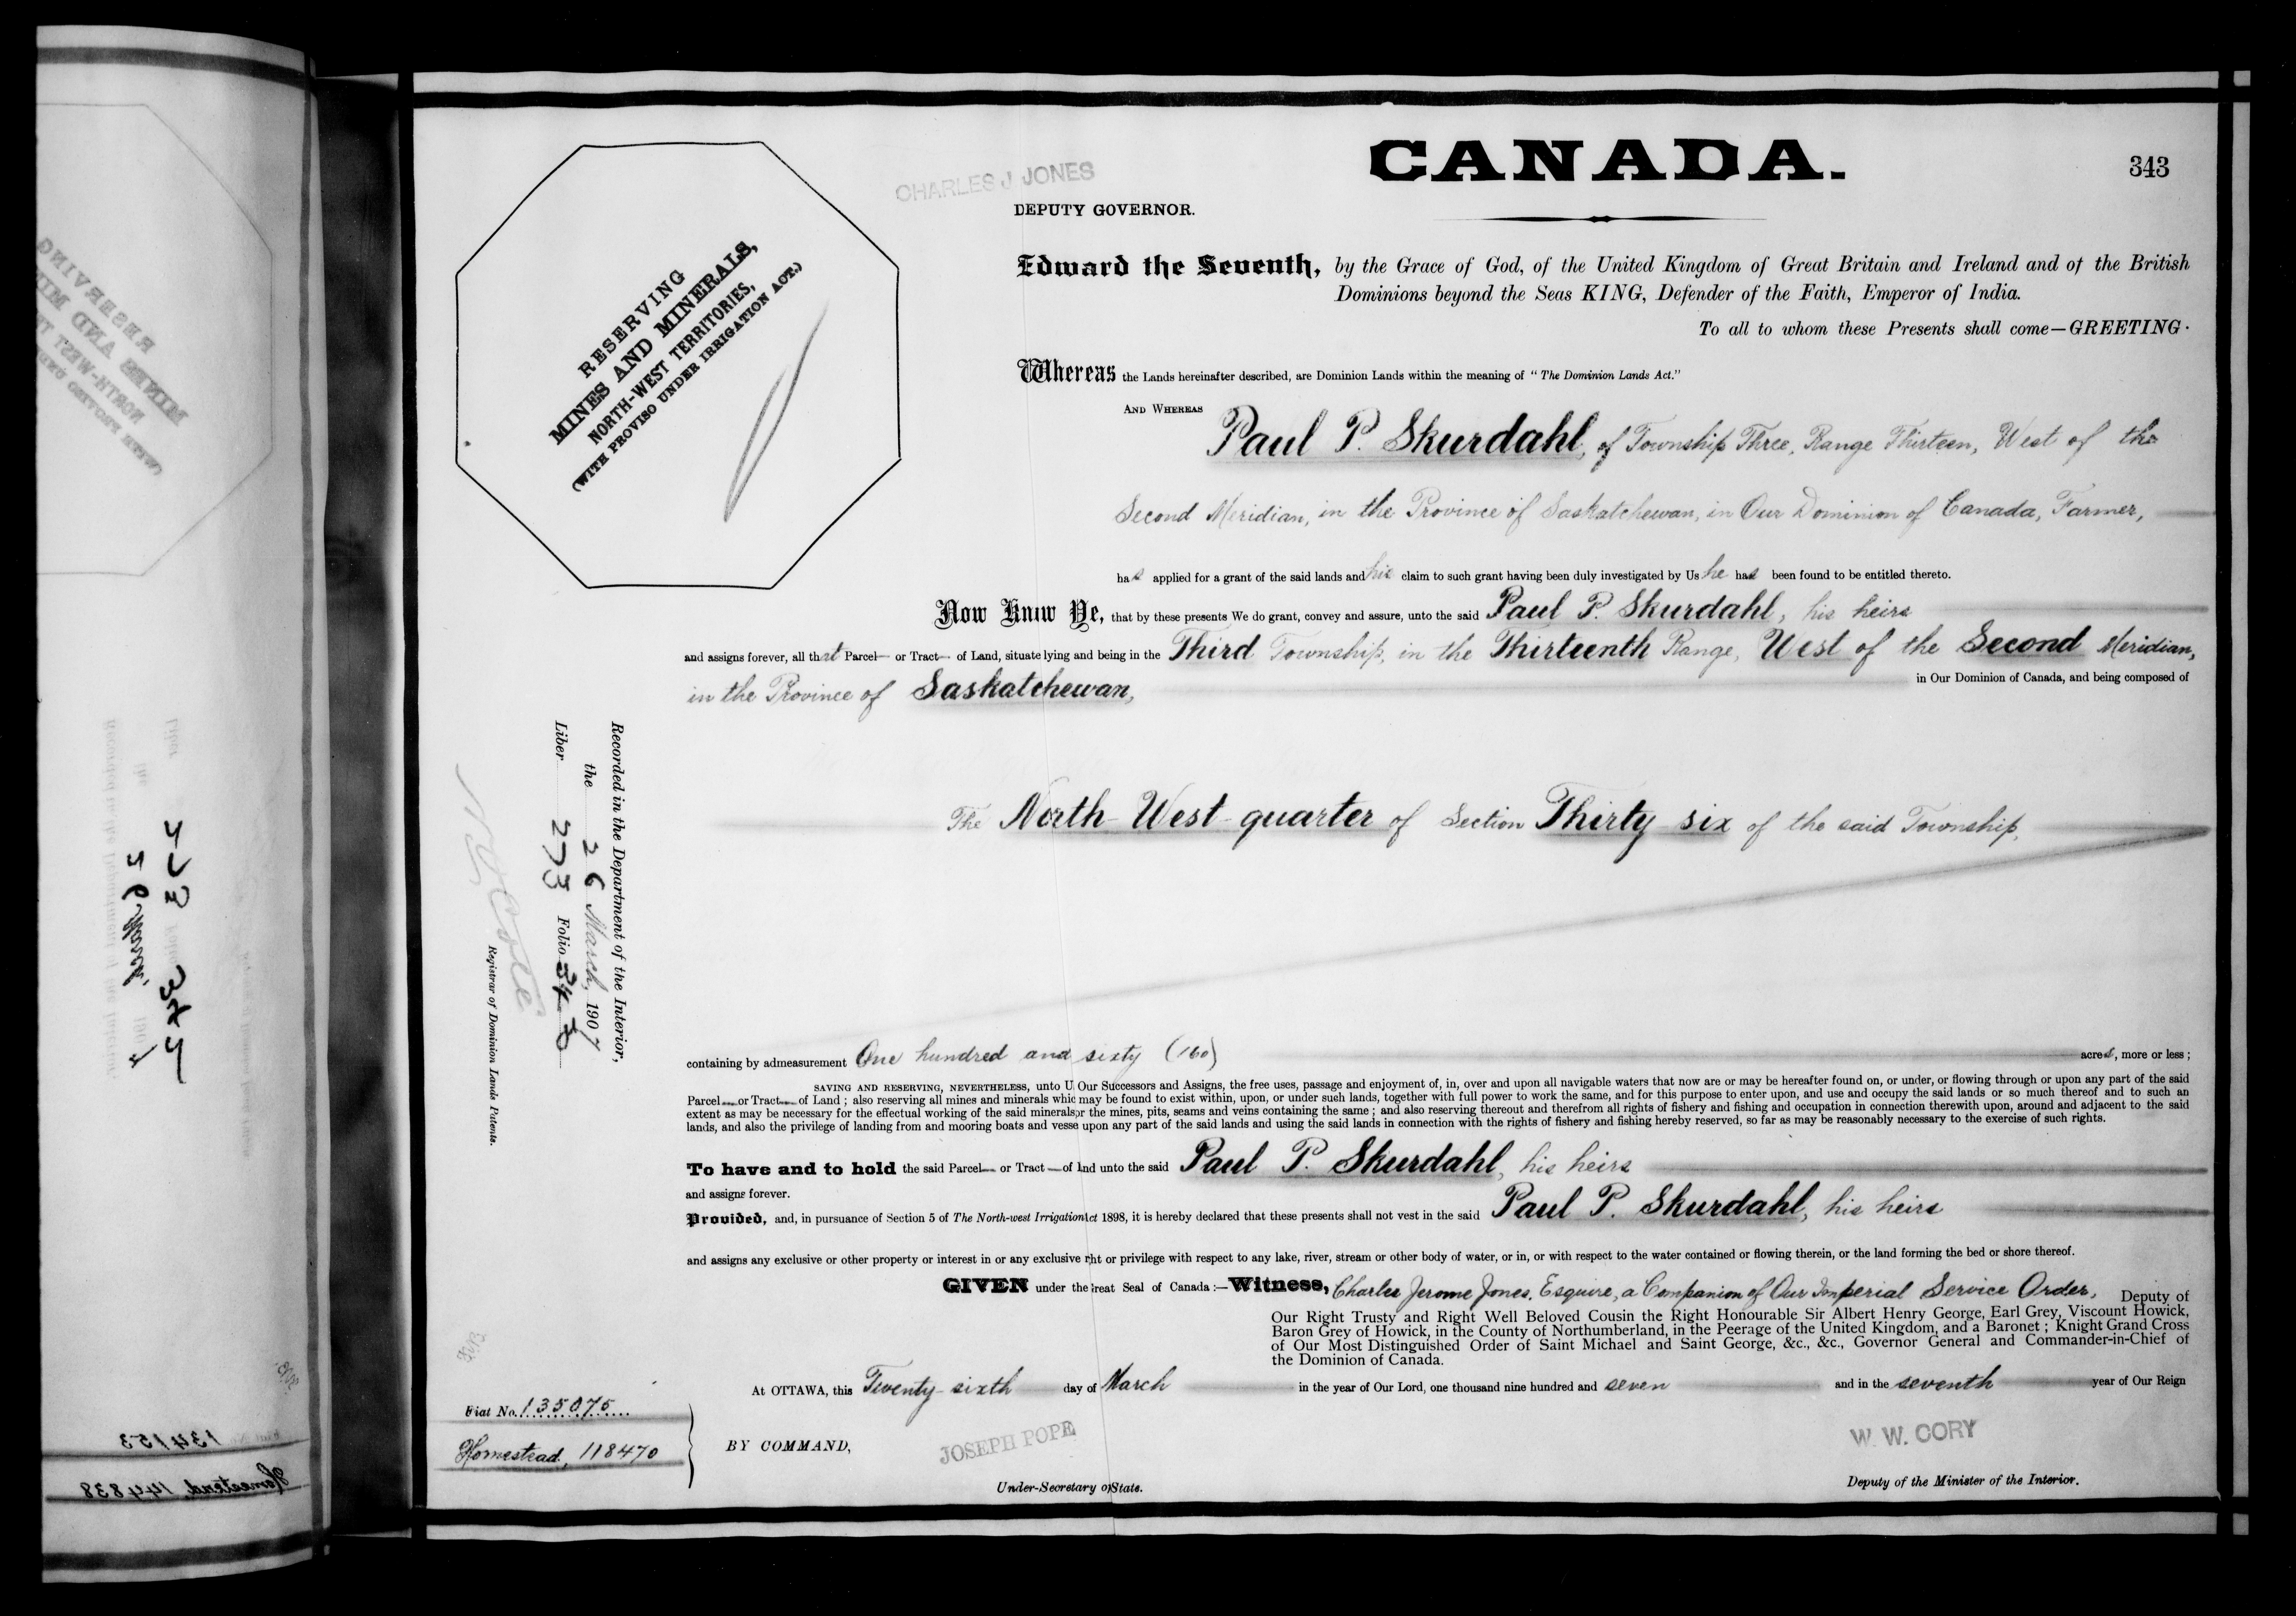 CANADA.
343
CHARLES J JONES
DEPUTY GOVERNOR.
RESERVING
MINES AND MINERALS,
NORTH-WEST TERRITORIES,
(WITH PROVISO UNDER IRRIGATION ACT.)
Edward the Seventh, by the Grace of God, of the United Kingdom of Great Britain and Ireland and of the British
Dominions beyond the Seas KING, Defender of the Faith, Emperor of India.
To all to whom these Presents shall come—GREETING.
Whereas the Lands hereinafter described, are Dominion Lands within the meaning of "The Dominion Lands Act."
AND WHEREAS
Paul P. Skurdahl, of Township Three, Range Thirteen, West of the
Second Meridian, in the Province of Saskatchewan, in Our Dominion of Canada, Farmer,
has applied for a grant of the said lands and his claim to such grant having been duly investigated by Us he has been found to be entitled thereto.
Now Know Ye, that by these presents We do grant, convey and assure, unto the said Paul P. Skurdahl, his heirs
and assigns forever, all that Parcel or Tract of Land, situate lying and being in the Third Township, in the Thirteenth Range, West of the Second Meridian,
in the Province of Saskatchewan, in Our Dominion of Canada, and being composed of
The North-West quarter of Section Thirty six of the said Township,
Recorded in the Department of the Interior,
the 26 March, 1907
Liber 273 Folio 343
Registrar of Dominion Lands Patents.
containing by admeasurement One hundred and sixty (160) acres, more or less ;
SAVING AND RESERVING, NEVERTHELESS, unto U Our Successors and Assigns, the free uses, passage and enjoyment of, in, over and upon all navigable waters that now are or may be hereafter found on, or under, or flowing through or upon any part of the said
Parcel or Tract of Land ; also reserving all mines and minerals whic may be found to exist within, upon, or under such lands, together with full power to work the same, and for this purpose to enter upon, and use and occupy the said lands or so much thereof and to such an
extent as may be necessary for the effectual working of the said minerals,r the mines, pits, seams and veins containing the same ; and also reserving thereout and therefrom all rights of fishery and fishing and occupation in connection therewith upon, around and adjacent to the said
lands, and also the privilege of landing from and mooring boats and vesse upon any part of the said lands and using the said lands in connection with the rights of fishery and fishing hereby reserved, so far as may be reasonably necessary to the exercise of such rights.
To have and to hold the said Parcel or Tract of lnd unto the said Paul P. Skurdahl, his heirs
and assigns forever.
Provided, and, in pursuance of Section 5 of The North-west Irrigation ct 1898, it is hereby declared that these presents shall not vest in the said Paul P. Skurdahl, his heirs
and assigns any exclusive or other property or interest in or any exclusive rht or privilege with respect to any lake, river, stream or other body of water, or in, or with respect to the water contained or flowing therein, or the land forming the bed or shore thereof.
GIVEN under the reat Seal of Canada :—Witness, Charles Jerome Jones, Esquire, a Companion of Our Imperial Service Order, Deputy of
Our Right Trusty and Right Well Beloved Cousin the Right Honourable Sir Albert Henry George, Earl Grey, Viscount Howick,
Baron Grey of Howick, in the County of Northumberland, in the Peerage of the United Kingdom, and a Baronet ; Knight Grand Cross
of Our Most Distinguished Order of Saint Michael and Saint George, &c., &c., Governor General and Commander-in-Chief of
the Dominion of Canada.
At OTTAWA, this Twenty-sixth day of March in the year of Our Lord, one thousand nine hundred and seven and in the seventh year of Our Reign
Fiat No. 135075
Homestead, 118470
BY COMMAND,
JOSEPH POPE
Under-Secretary of State.
W. W. CORY
Deputy of the Minister of the Interior.